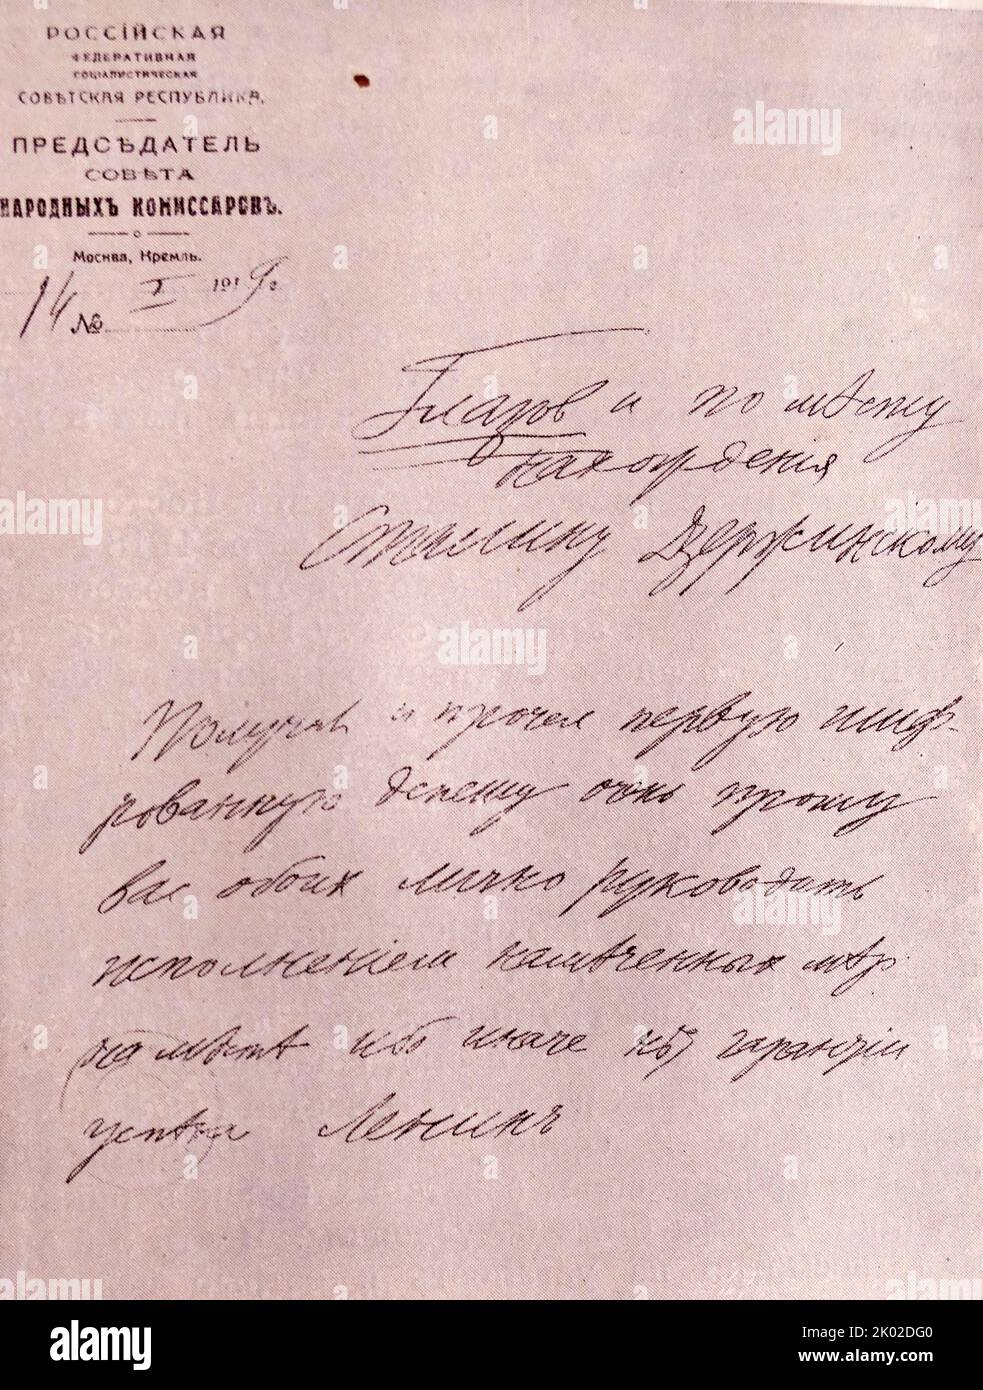 РОССІЙСКАЯ
ФЕДЕРАТИВНАЯ
СОЦІАЛИСТИЧЕСКАЯ
СОВѢТСКАЯ РЕСПУБЛИКА.
ПРЕДСѢДАТЕЛЬ
СОВѢТА
НАРОДНЫХЪ КОМИССАРОВЪ.
Москва, Кремль.
14 I 1919 г.
№
Глазов и по мѣсту
нахождения
Сталину Дзержинскому
Получив и прочел первую шиф-
рованную депешу очень прошу
вас обоих лично руководить
исполненіем намѣченных мѣр
на мѣстѣ ибо иначе нѣт гарантіи
успѣха Ленинъ
alamy
alamy
alamy
alamy
Image ID: 2K02DG0
www.alamy.com